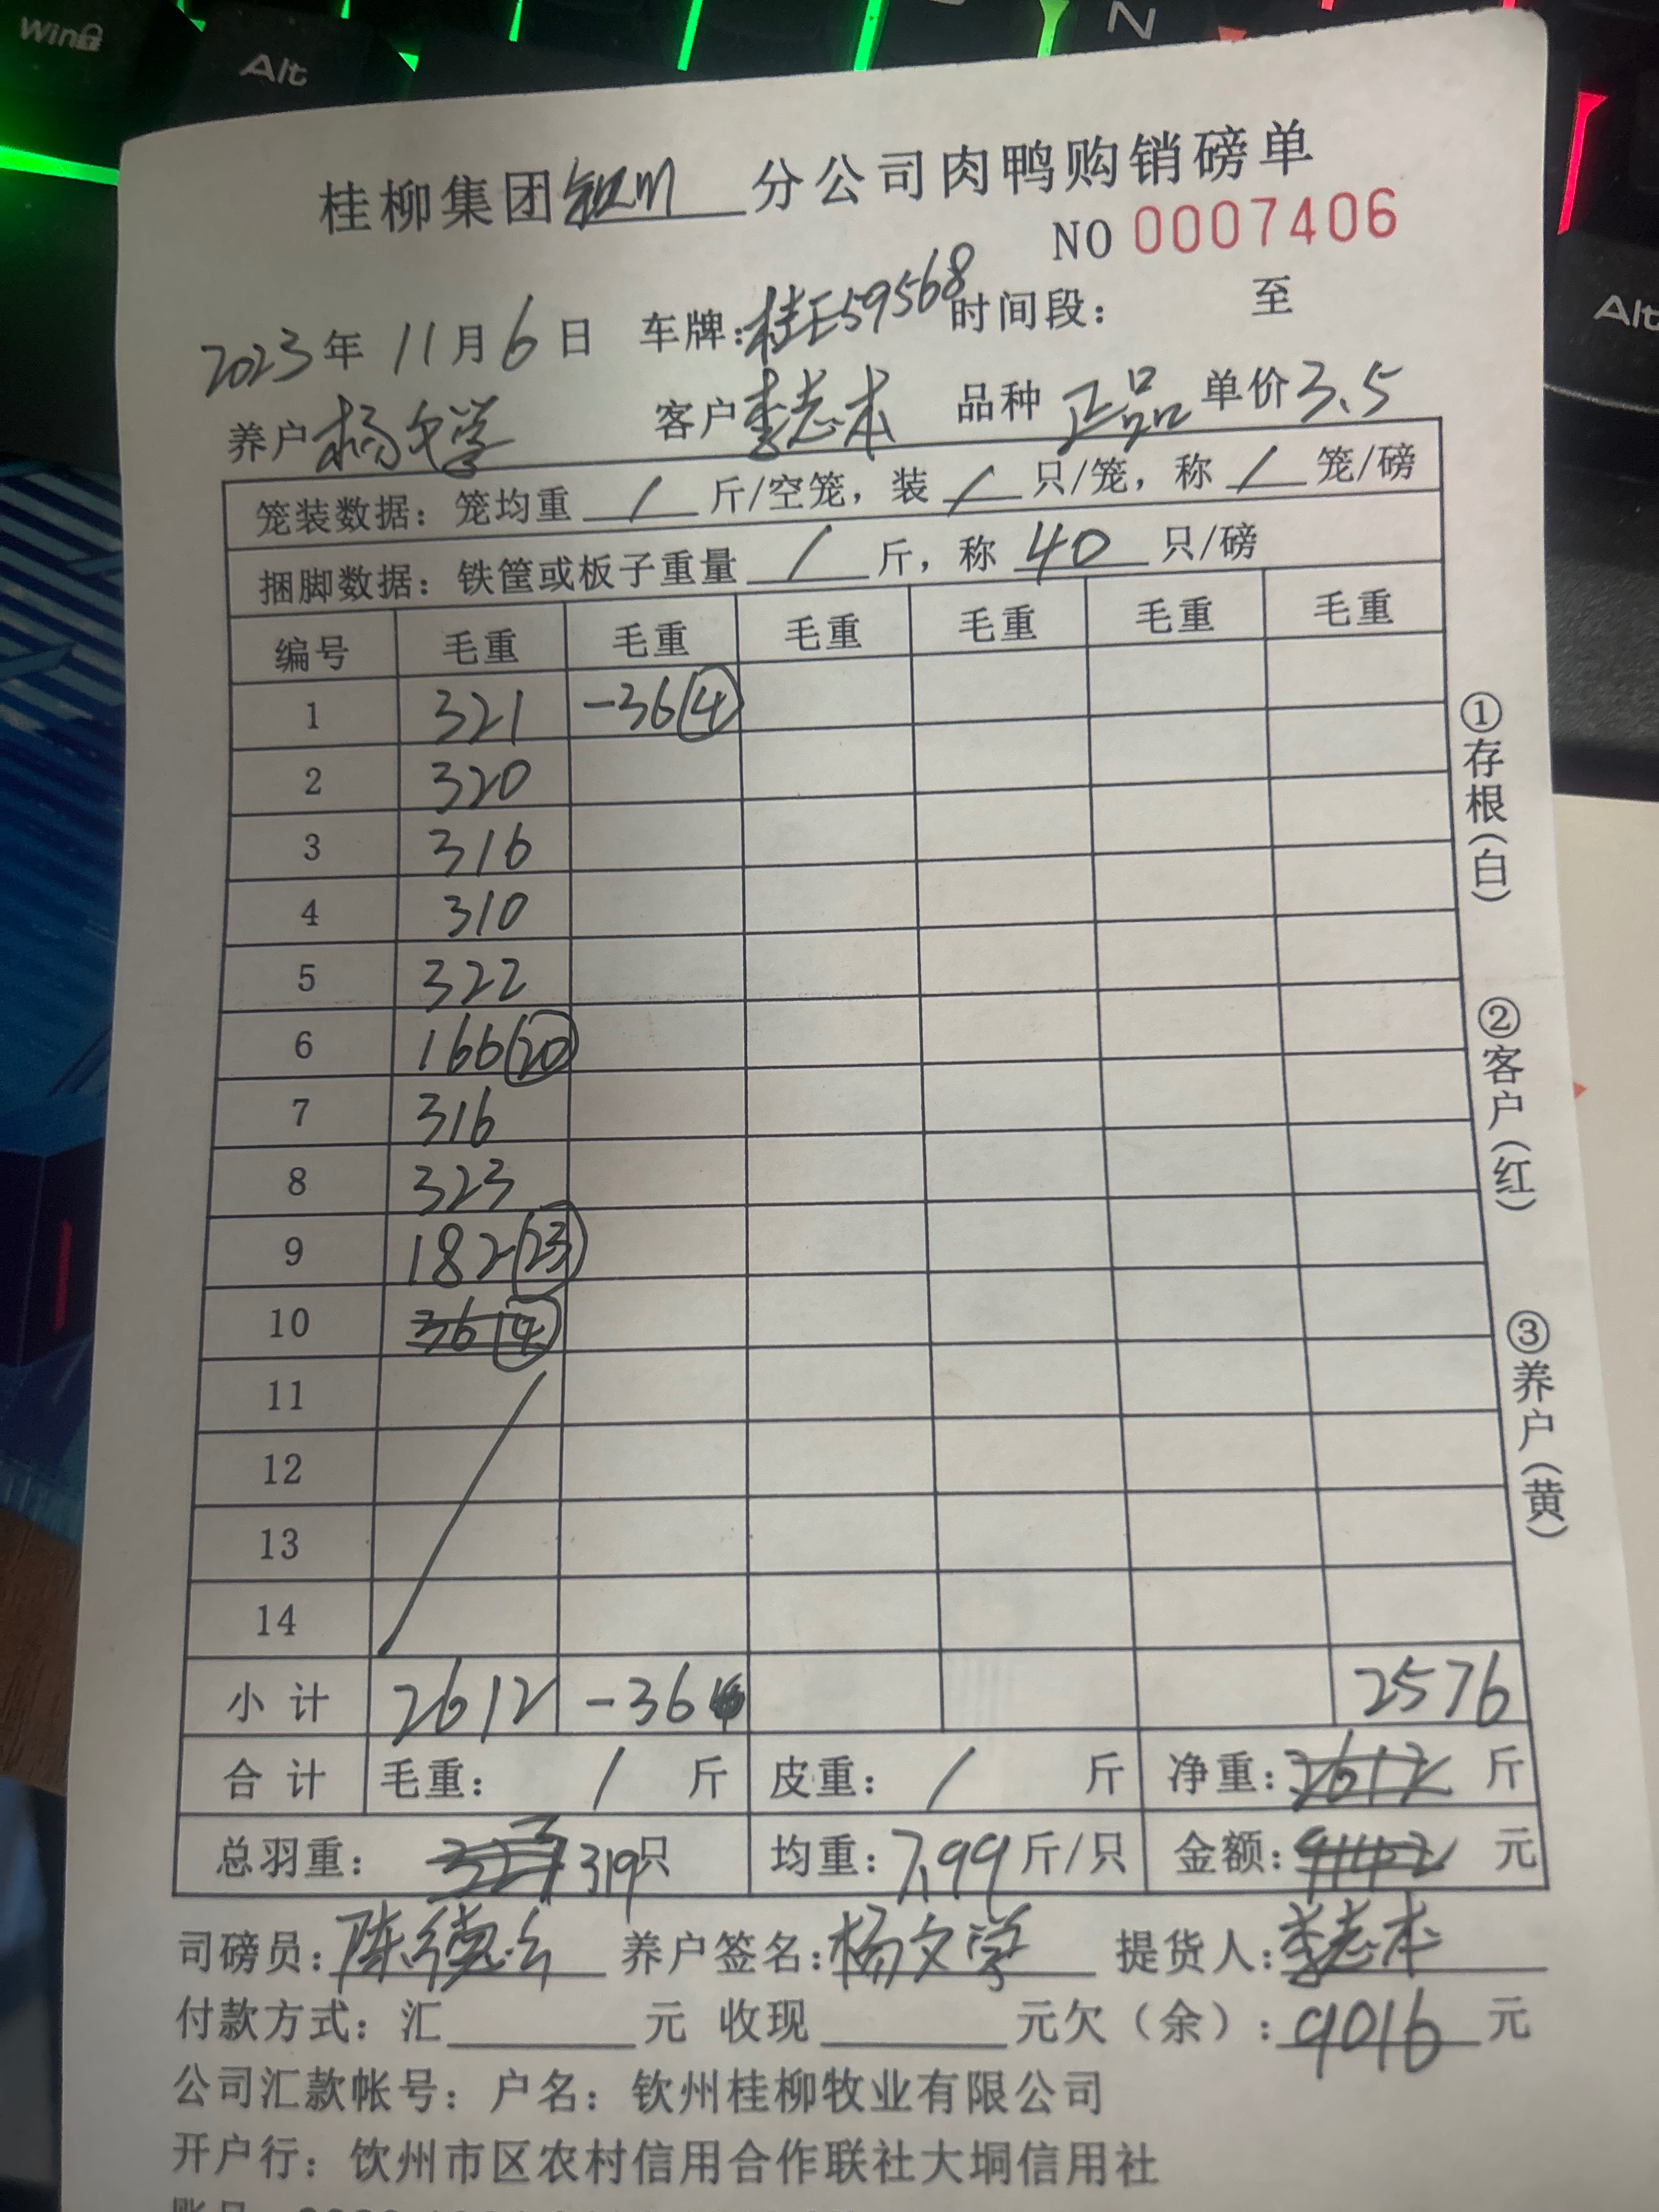 Win
Alt
N
Alt
桂柳集团钦州分公司肉鸭购销磅单
NO 0007406
2023年11月6日 车牌:桂E59568 时间段: 至
养户杨文学 客户李志本 品种 正品 单价3.5
笼装数据: 笼均重 / 斤/空笼, 装 / 只/笼, 称 / 笼/磅
捆脚数据: 铁筐或板子重量 / 斤, 称 40 只/磅
编号 毛重 毛重 毛重 毛重 毛重 毛重
1 321 -36(4)
2 320
3 316
4 310
5 322
6 166(20)
7 316
8 323
9 182(23)
10 36(4)
11
12
13
14
小计 2612 -36 2576
合计 毛重: / 斤 皮重: / 斤 净重:2612 斤
总羽重: 319只 均重:7.99斤/只 金额:9142 元
司磅员:陈德 养户签名:杨文学 提货人:李志本
付款方式: 汇 元 收现 元欠(余):9016 元
公司汇款帐号: 户名: 钦州桂柳牧业有限公司
开户行: 钦州市区农村信用合作联社大垌信用社
①存根(白)
②客户(红)
③养户(黄)